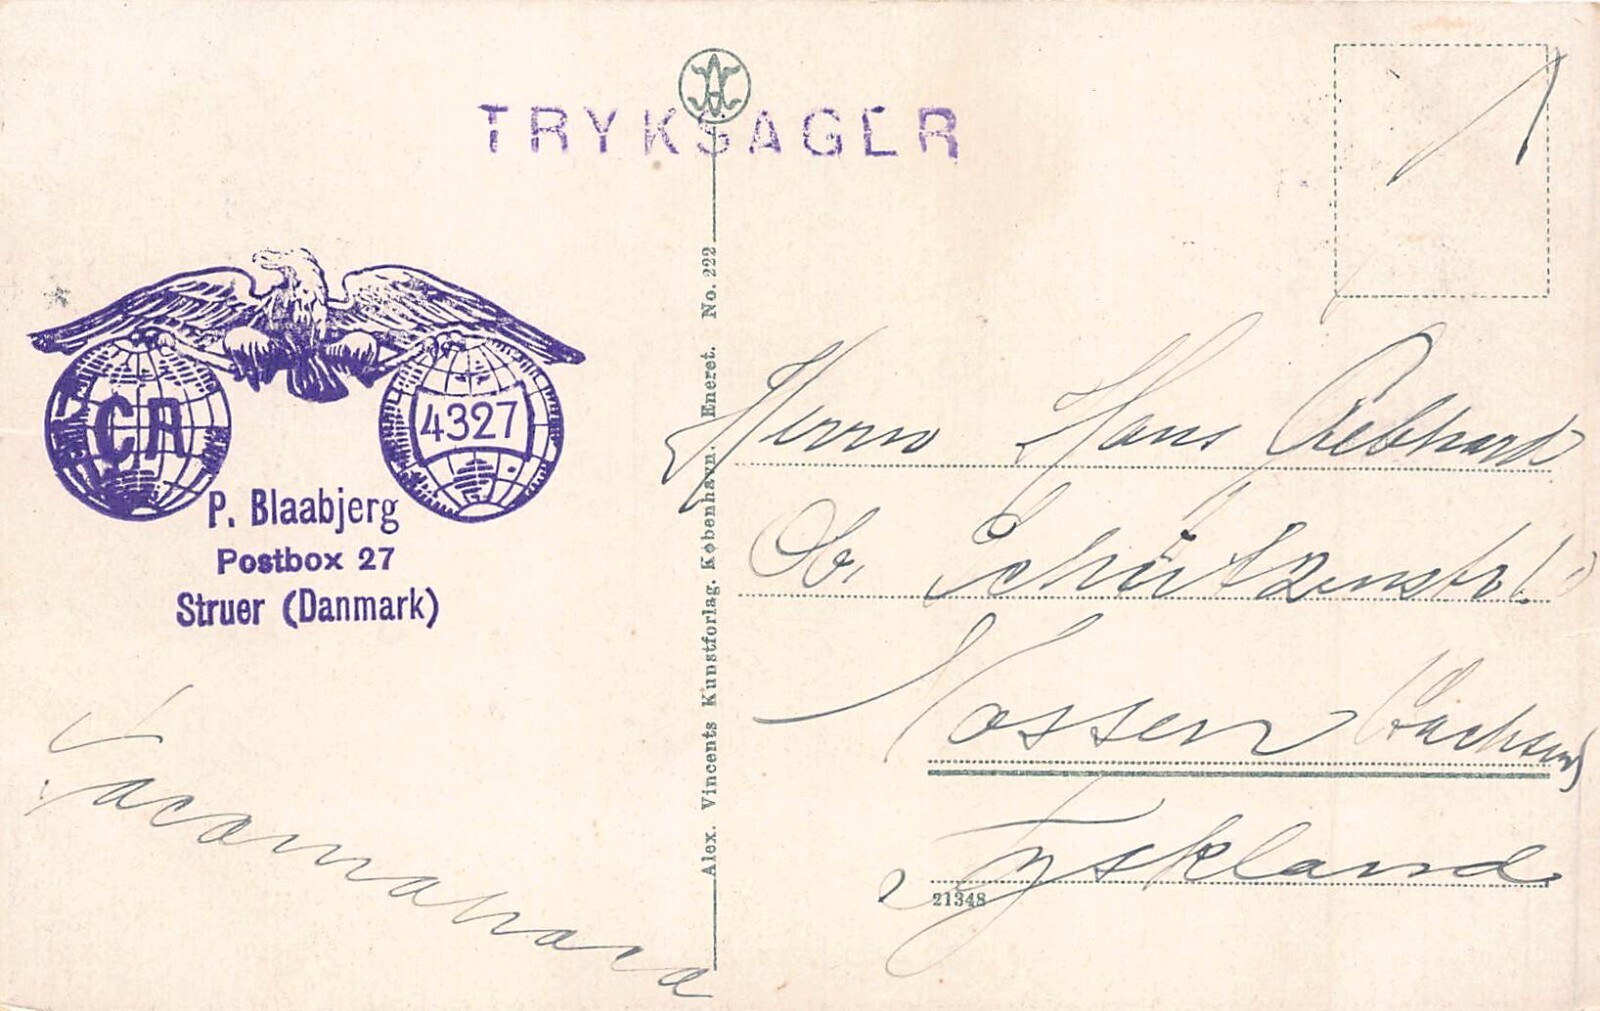 TRYKSAGER
CA
4327
P. Blaabjerg
Postbox 27
Struer (Danmark)
Alex. Vincents Kunstforlag. København. Eneret. No. 222
Herrn Hans Gebhard
Ob. Schützenstr.
Nossen (Sachsen)
Tyskland
21348